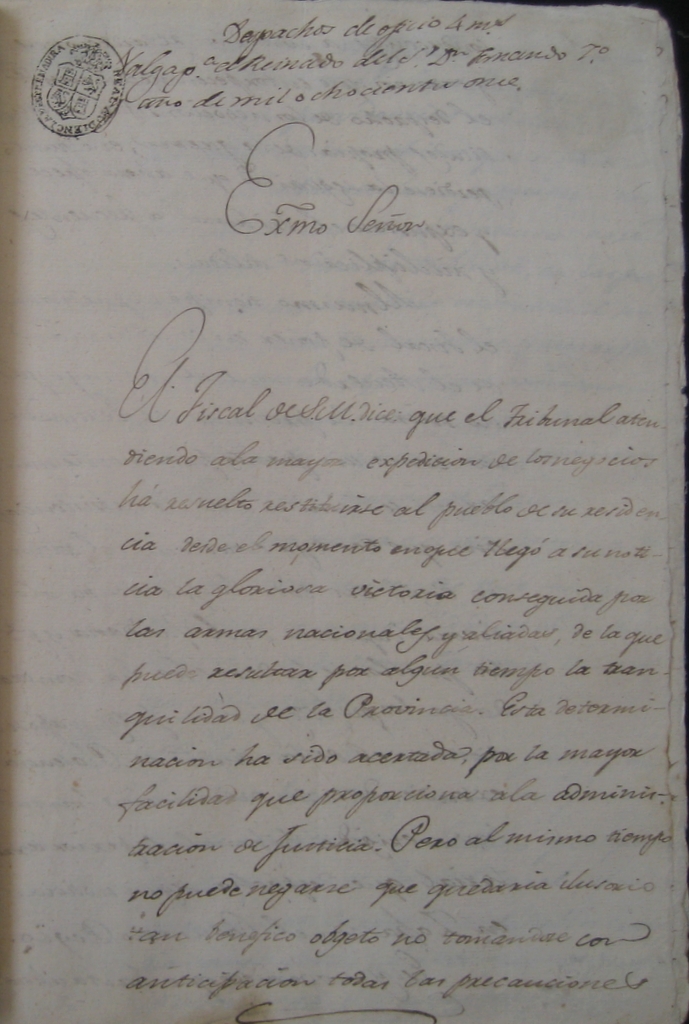 Despachos de oficio 4 mrs
Valga pa. el Reinado del S.r D.n Fernando 7.o
año de mil ochocientos once.
Exmo Señor
El Fiscal de S.M. dice: que el Tribunal aten-
diendo a la mayor expedicion de los negocios
há resuelto restituirse al pueblo de su residen-
cia desde el momento en que llegó a su noti-
cia la gloriosa victoria conseguida por
las armas nacionales, y aliadas, de la que
puede resultar por algun tiempo la tran-
quilidad de la Provincia. Esta determi-
nacion ha sido acertada, por la mayor
facilidad que proporciona á la adminis-
tración de Justicia. Pero al mismo tiempo
no puede negarse que quedaria ilusorio
tan benefico objeto no tomandose con
anticipación todas las precauciones